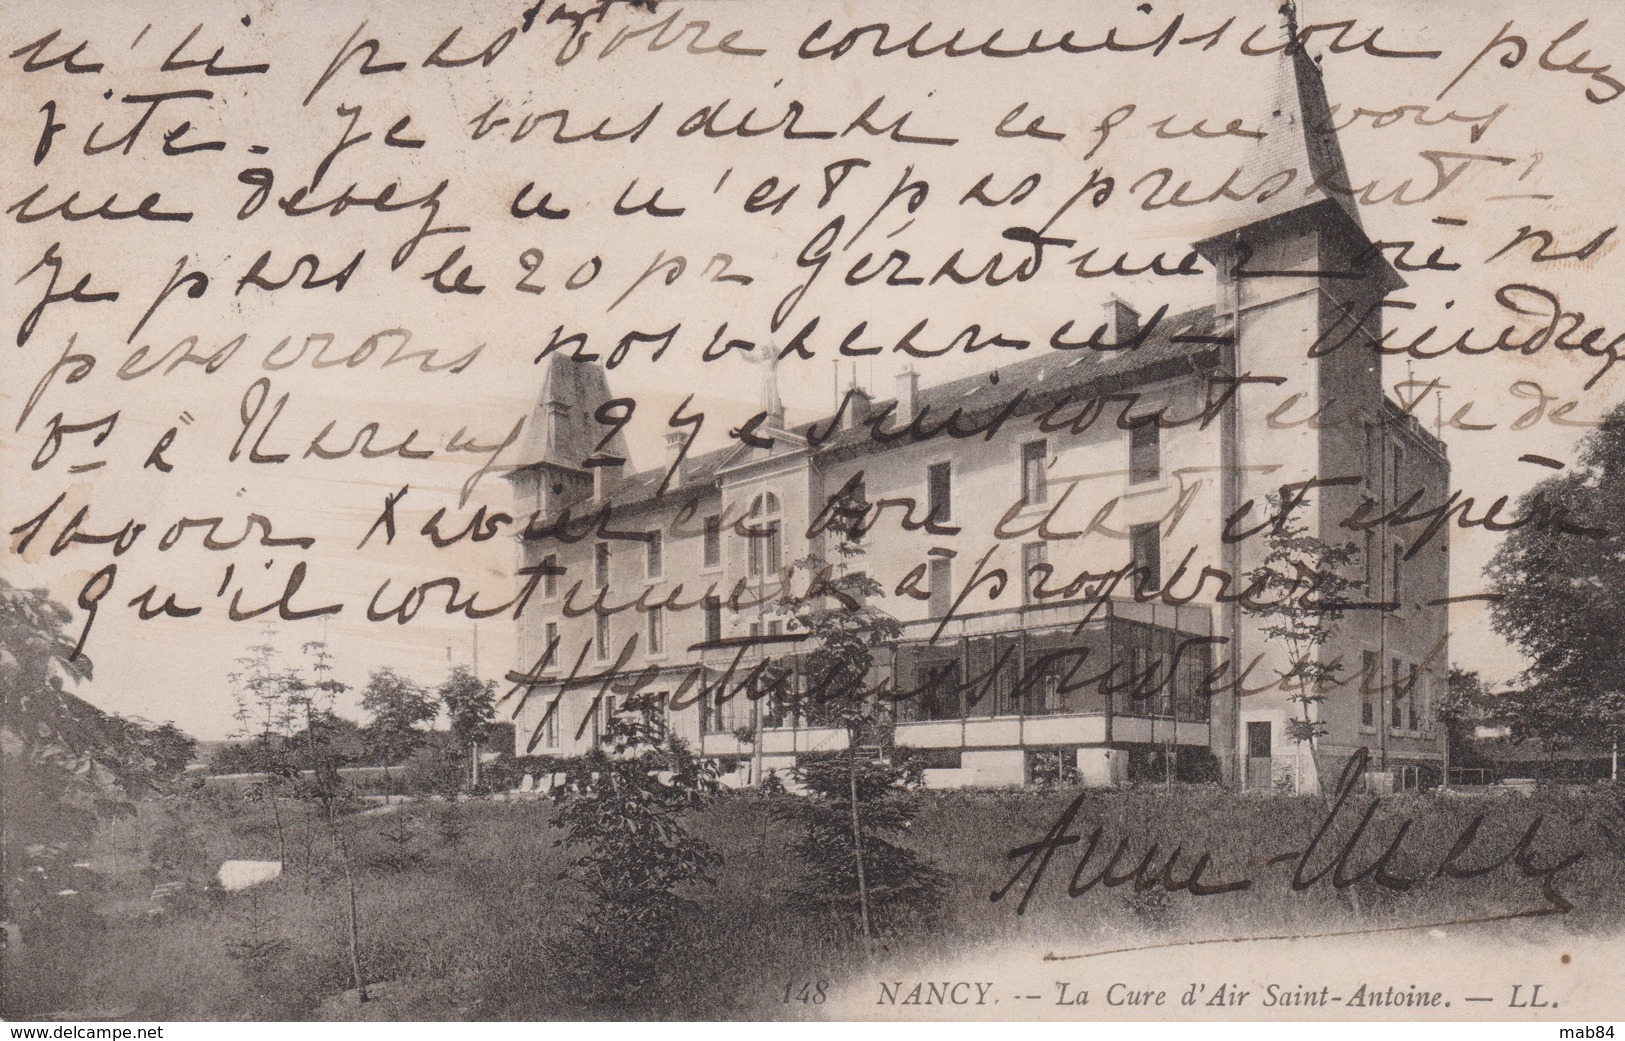 fait
n'ai pas votre commission plus
vite. Je vous dirai ce que vous
me devez ce n'est pas pressant !
Je pars le 20 pr Gérardmer où ns
passerons nos vacances - Viendrez
vs à Nancy ? Je suis contente de
savoir Xavier en bon état et espère
qu'il continuera à prospérer -
Affectueux souvenirs
Anne-Marie
148 NANCY. -- La Cure d'Air Saint-Antoine. — LL.
http://www.delcampe.net
mab84